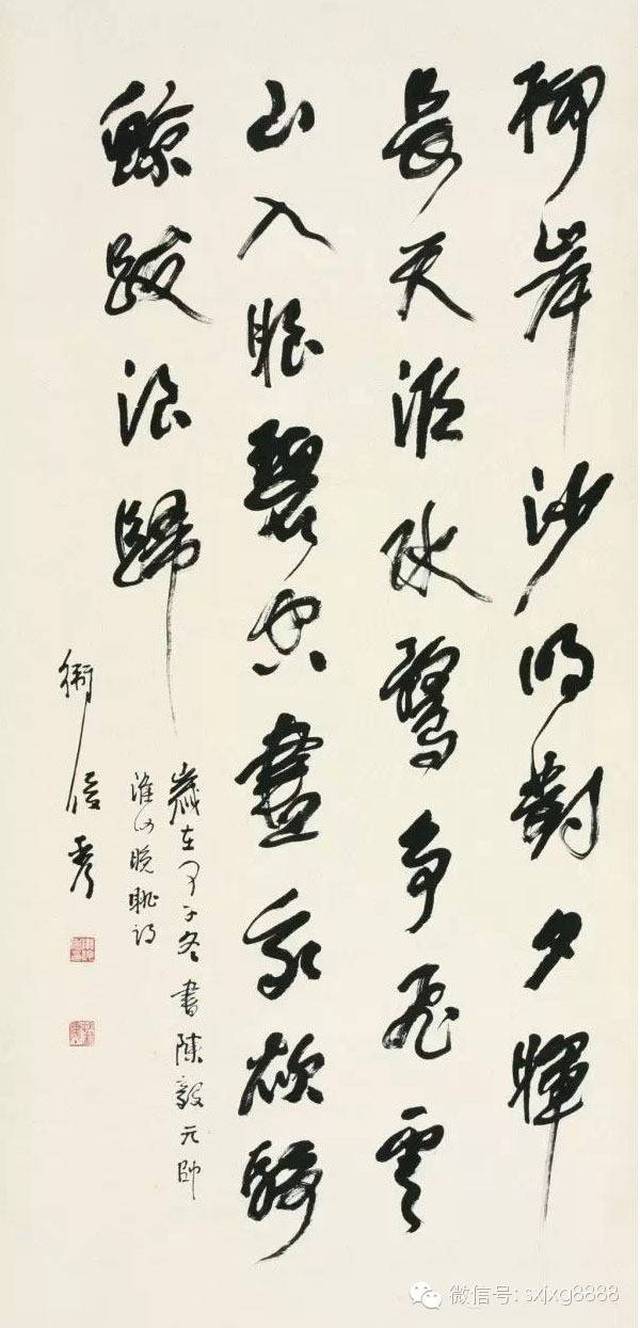 柳岸沙明對夕暉
長天淮水鷺爭飛雲
山入眼碧空盡我欲騎
鯨跋浪歸
歲在甲子冬書陳毅元帥
淮河晚眺詩
衛俊秀
微信号: sxjxg8888